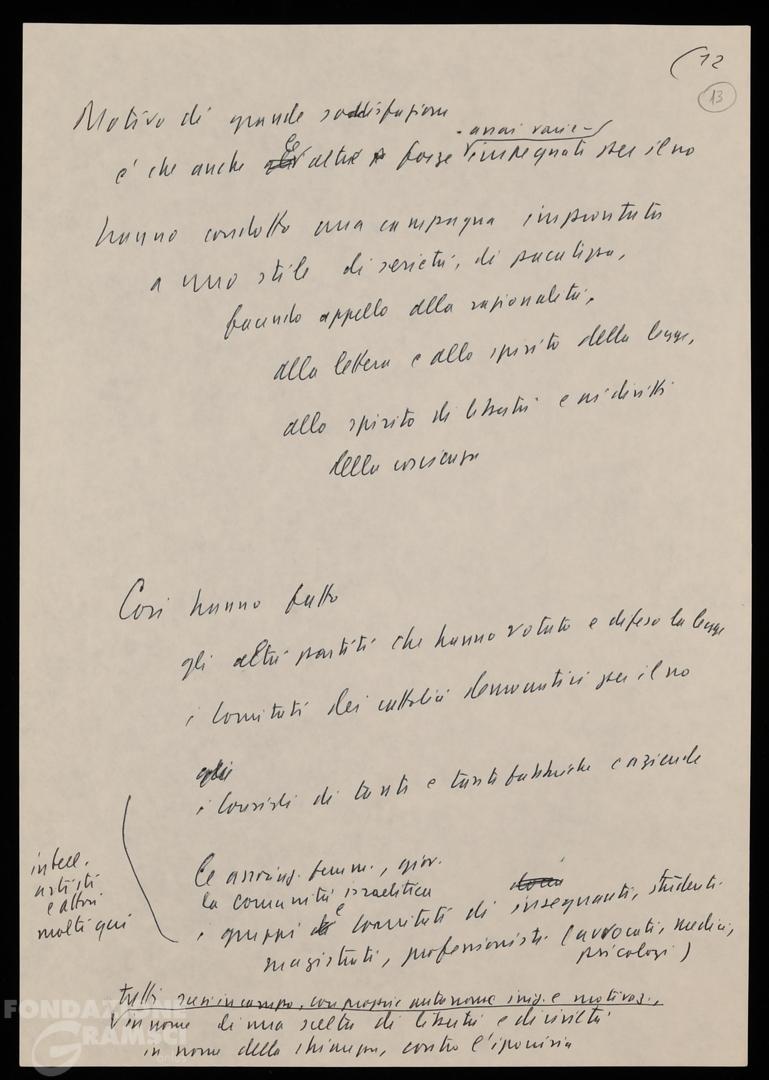 (12
13
Motivo di grande soddisfazione
- assai varie -
è che anche le altre forze impegnate per il no
hanno condotto una campagna improntata
a uno stile di serietà, di pacatezza,
facendo appello alla razionalità,
alla lettera e allo spirito della legge,
allo spirito di libertà e ai diritti
della coscienza
Così hanno fatto
gli altri partiti che hanno votato e difeso la legge
i comitati dei cattolici democratici per il no
gli
i Consigli di tanti e tante fabbriche e aziende
intell.
artisti
e attori
molti qui
le associaz. femm., giov.
la comunità israelitica
i gruppi e comitati di insegnanti, studenti
magistrati, professionisti (avvocati, medici,
psicologi)
tutti scesi in campo, con proprie autonome iniz. e motivaz.,
in nome di una scelta di libertà e di civiltà
in nome della chiarezza, contro l'ipocrisia
FONDAZIONE
GRAMSCI